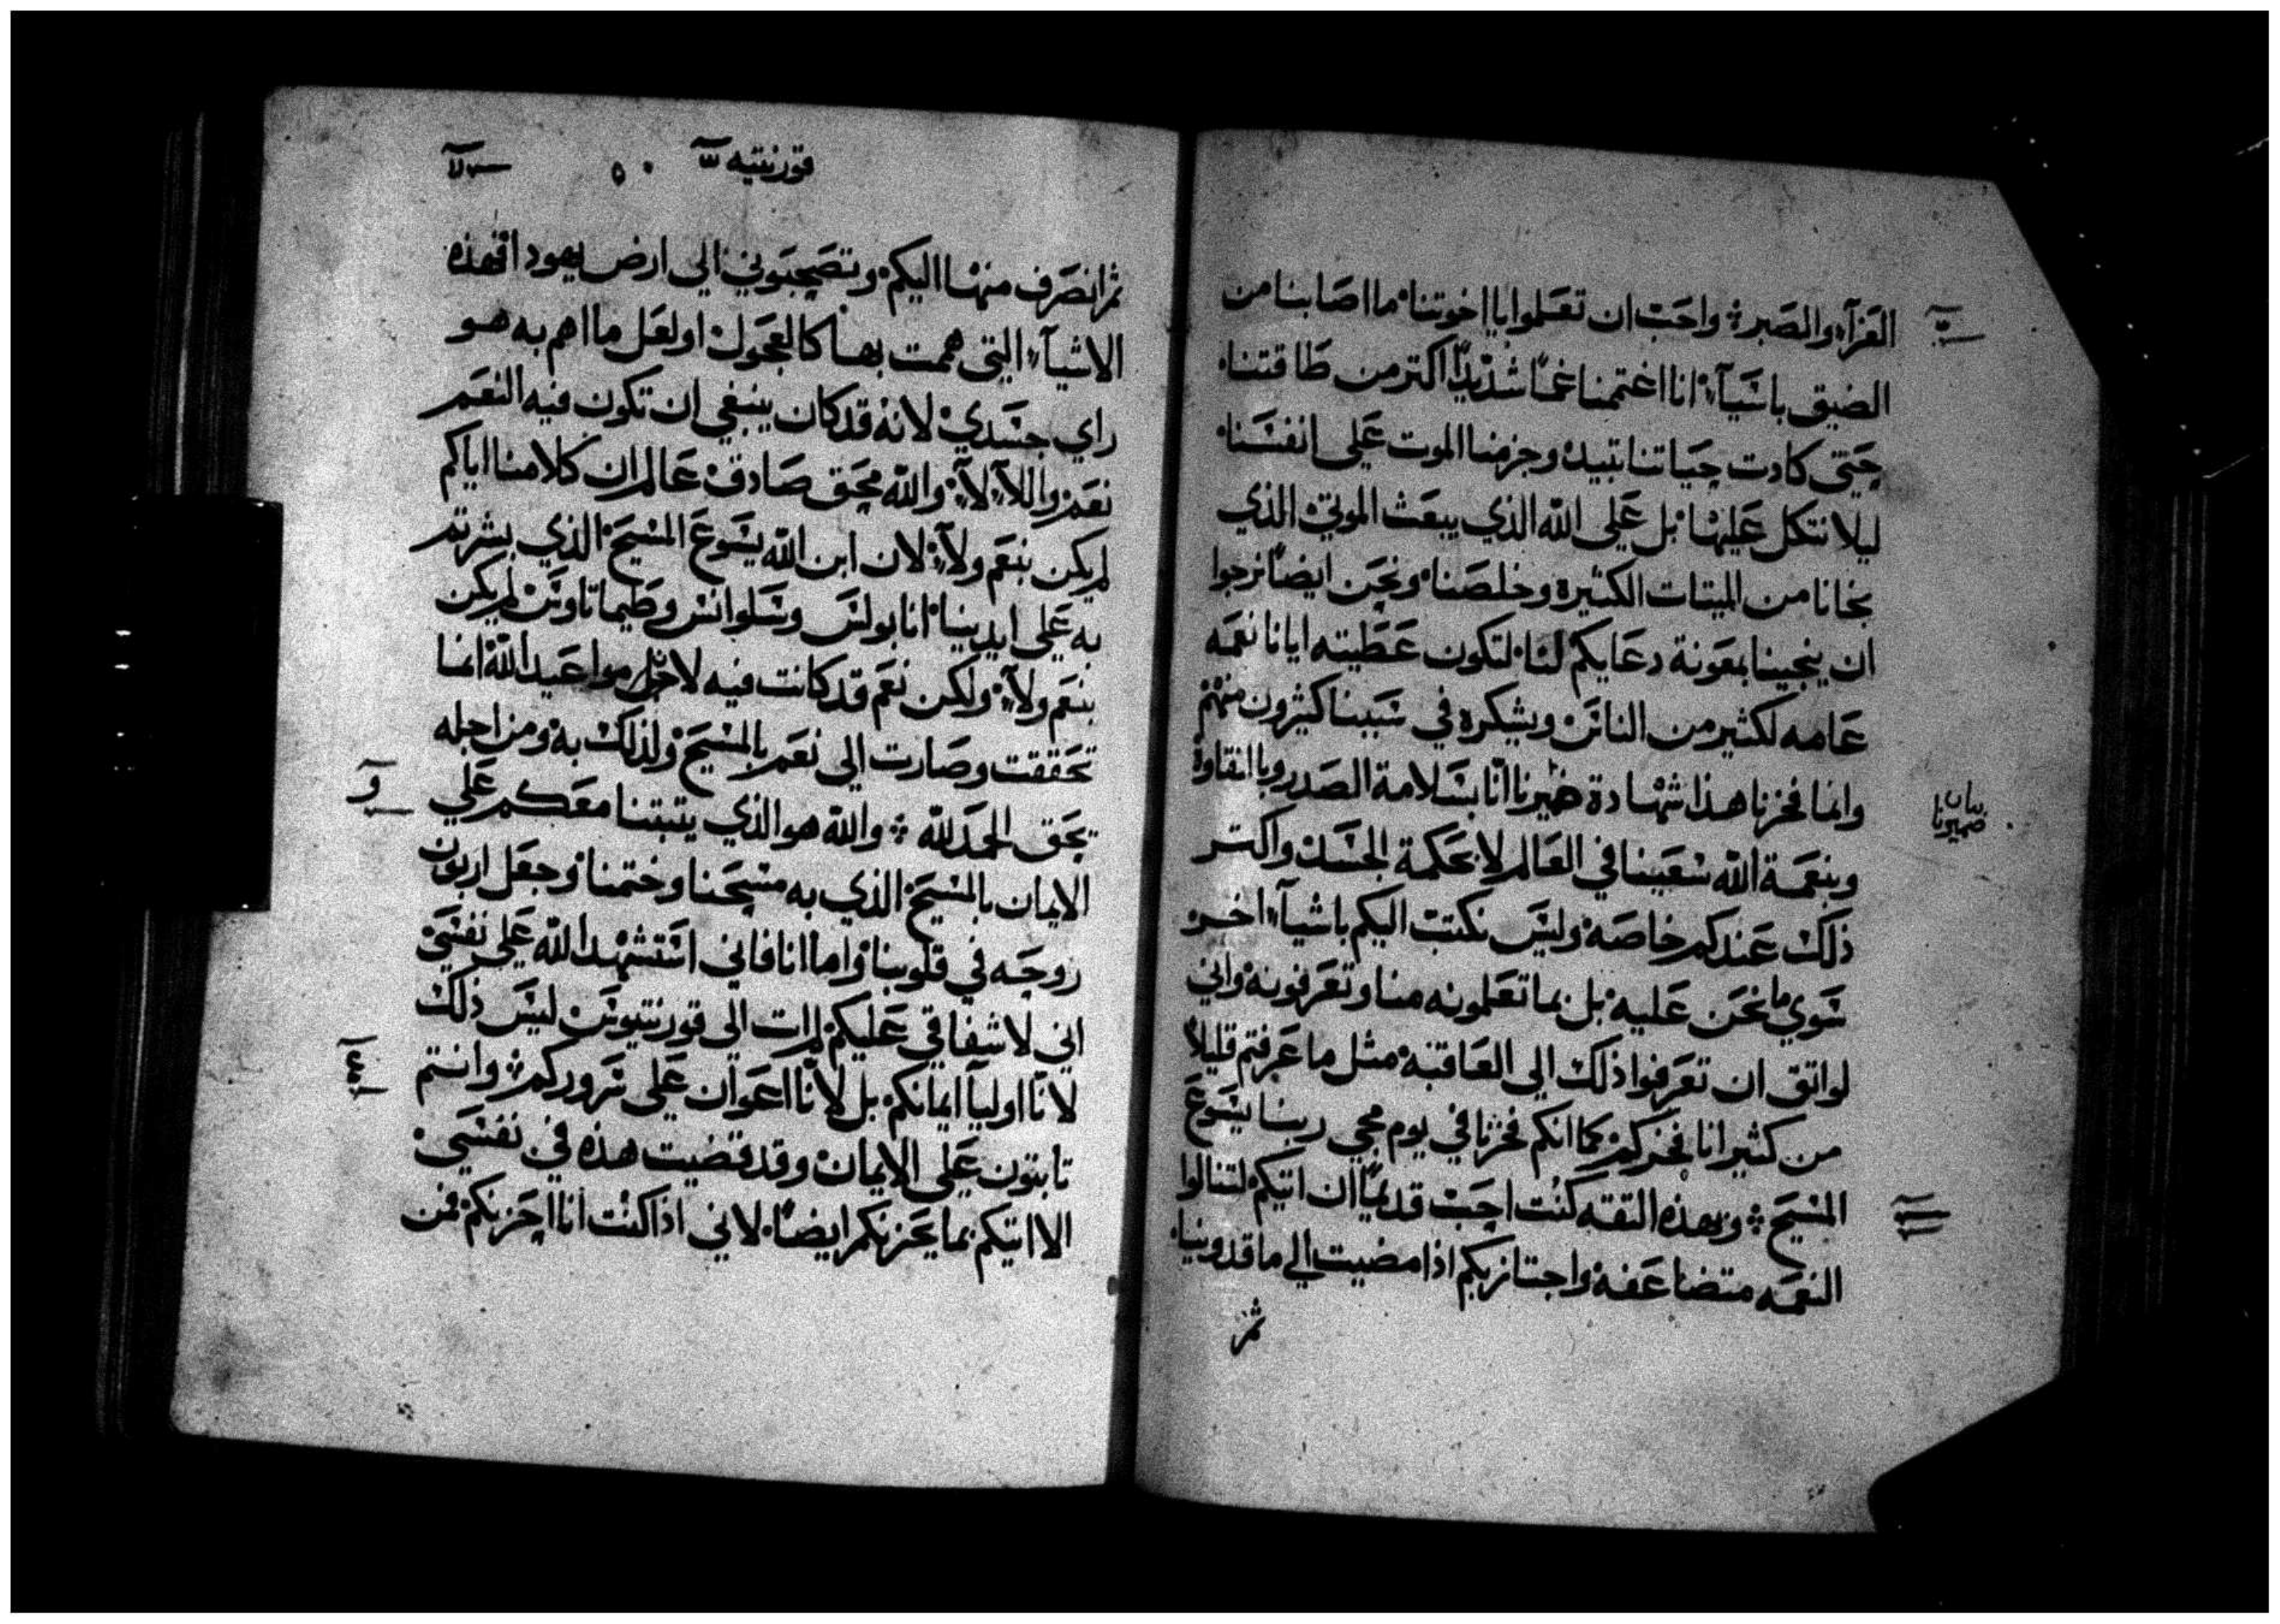 العزآء والصبر ❖ واحب ان تعلموا يا اخوتنا ما اصابنا من
الضيق باسيآء انا اغتممنا غمًا شديدًا اكتر من طاقتنا
حتى كادت حياتنا تبيد وجزمنا الموت على انفسنا
ليلا نتكل عليها بل على الله الذي يبعث الموتي الذي
نجانا من الميتات الكثيره وخلصنا ونحن ايضًا نرجوا
ان ينجينا بمعونة دعايكم لنا لتكون عطيته ايانا نعمه
عامه لكثير من الناس ويشكره في سببنا كثيرون منهم
وانما فخرنا هذا شهادة ضميرنا انّا بسلامة الصدر وبالنقاوة
بيان
ضميرنا
وبنعمة الله سعينا في العالم لا بحكمة الجسد واكتر
ذلك عندكم خاصه وليس نكتب اليكم باشيآء اخر
سوي ما نحن عليه بل بما تعلمونه منا وتعرفونه واني
لواتق ان تعرفوا ذلك الى العاقبة مثل ما عرفتم قليلاً
من كثير انا فخركم كما انكم فخرنا في يوم مجي ربنا يسوع
المسيح ❖ وبهذه التقه كنت احب قديمًا ان اتيكم لتنالوا
النعمه متضاعفه واجتاز بكم اذا مضيت الي ماقدونيا
ثم
قورنتيه
٥٠
ثم انصرف منها اليكم وتصحبوني الى ارض يهودا فهذه
الاشيآء التي هممت بها كالعجول او لعل ما اهم به هو
راي جسدي لانه قد كان ينبغي ان تكون فيه النعم
نعم واللآء لآء والله محق صادق عالم ان كلامنا اياكم
لم يكن بنعم ولآء لان ابن الله يسوع المسيح الذي بشرتم
به على ايدينا انا بولس وسلوانس وطيماتاوس لم يكن
بنعم ولآء ولكن نعم قد كانت فيه لان كل مواعيد الله انما
تحققت وصارت الى نعم بالمسيح ولذلك به ومن اجله
نحق الحمد لله ❖ والله هو الذي يتبتنا معكم علي
الايمان بالمسيح الذي به مسحنا وختمنا وجعل اربون
روحه في قلوبنا واما انا فاني استشهد الله على نفسي
اني لاشفاقي عليكم لم ات الى قورنتيوس ليس ذلك
لانّا اوليآ ايمانكم بل لانّا اعوان على سروركم ❖ وانتم
تابتون على الايمان وقد قضيت هذه في نفسي
الا اتيكم بما يحزنكم ايضًا لاني اذا كنت انا احزنكم فمن